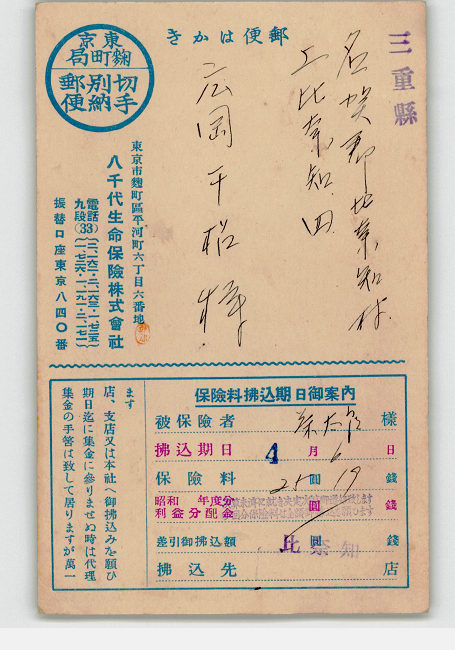 郵便はかき
東京
麴町局
切手
別納
郵便
三重縣
名賀郡比奈知村
上比奈知
広岡千松様
東京市麴町區平河町六丁目六番地
八千代生命保險株式會社
電話九段(33)
振替口座東京八四〇番
保險料拂込期日御案內
被保險者 様
拂込期日 4月6日
保險料 25圓19錢
昭和 年度分
利益分配金 圓 錢
差引御拂込額 圓 錢
比奈知
拂込先 店
集金の手筈は致して居りますが萬一
期日迄に集金に參りませぬ時は代理
店、支店又は本社へ御拂込みを願ひ
ます